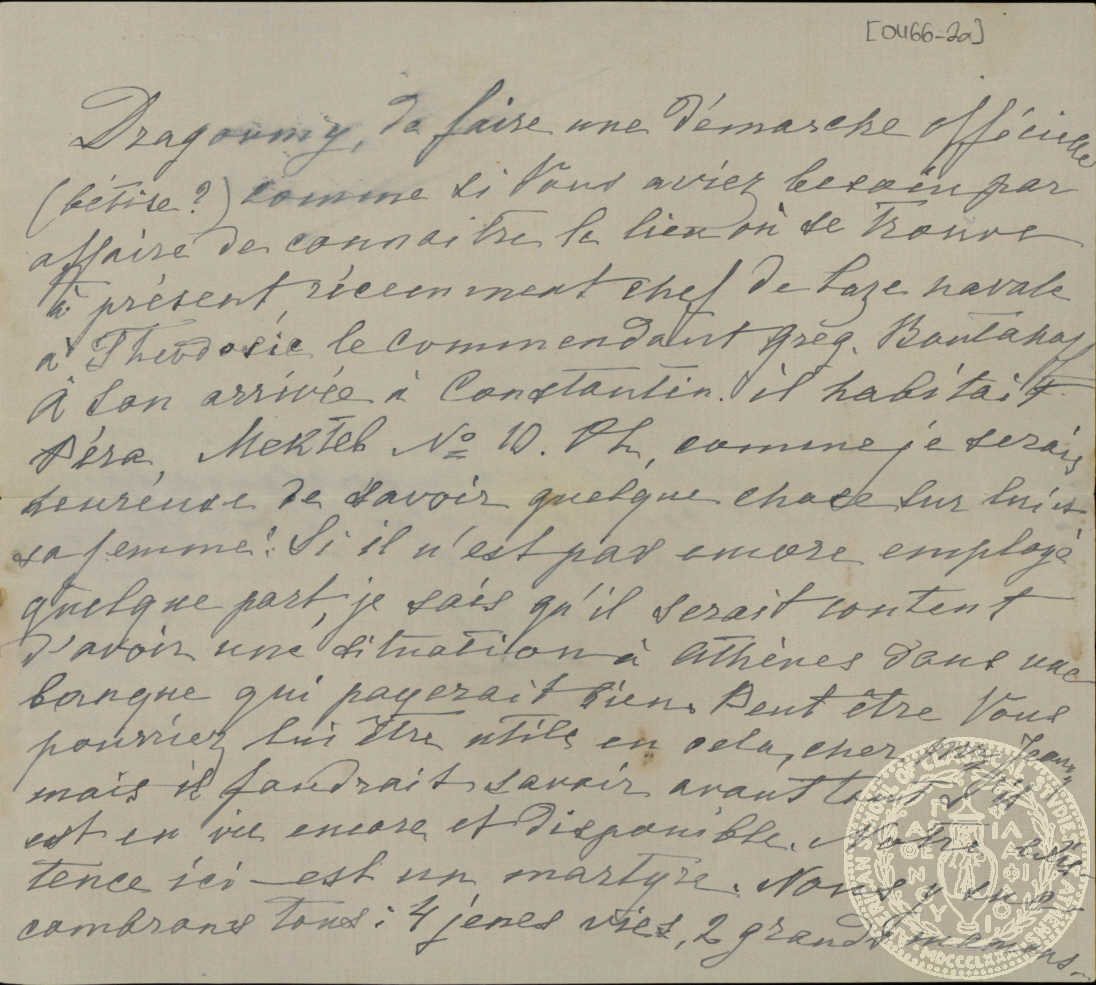 [0466-2a]
Dragoumy, de faire une démarche officielle
(bétise?) comme si Vous aviez besoin par
affaire de connaitre le lieu où se trouve
à présent récemment chef de baze navale
à Théodosie le commendant Grég. Boutakof
À son arrivée à Constantin. il habitait
Péra, Mekteb № 10. Oh, comme je serais
heureuse de savoir quelque chose sur lui et
sa femme! Si il n'est pas encore employé
quelque part, je sais qu'il serait content
d'avoir une situation à Athènes dans une
banque qui payerait bien. Peut être Vous
pourriez lui être utile en cela, cher Jean,
mais il faudrait savoir avant tout s'il
est en vie encore et disponible. Notre exis-
tence ici - est un martyre. Nous y suc-
combrons tous: 4 jenes vies, 2 grands mamans.
MDCCCLXXXI